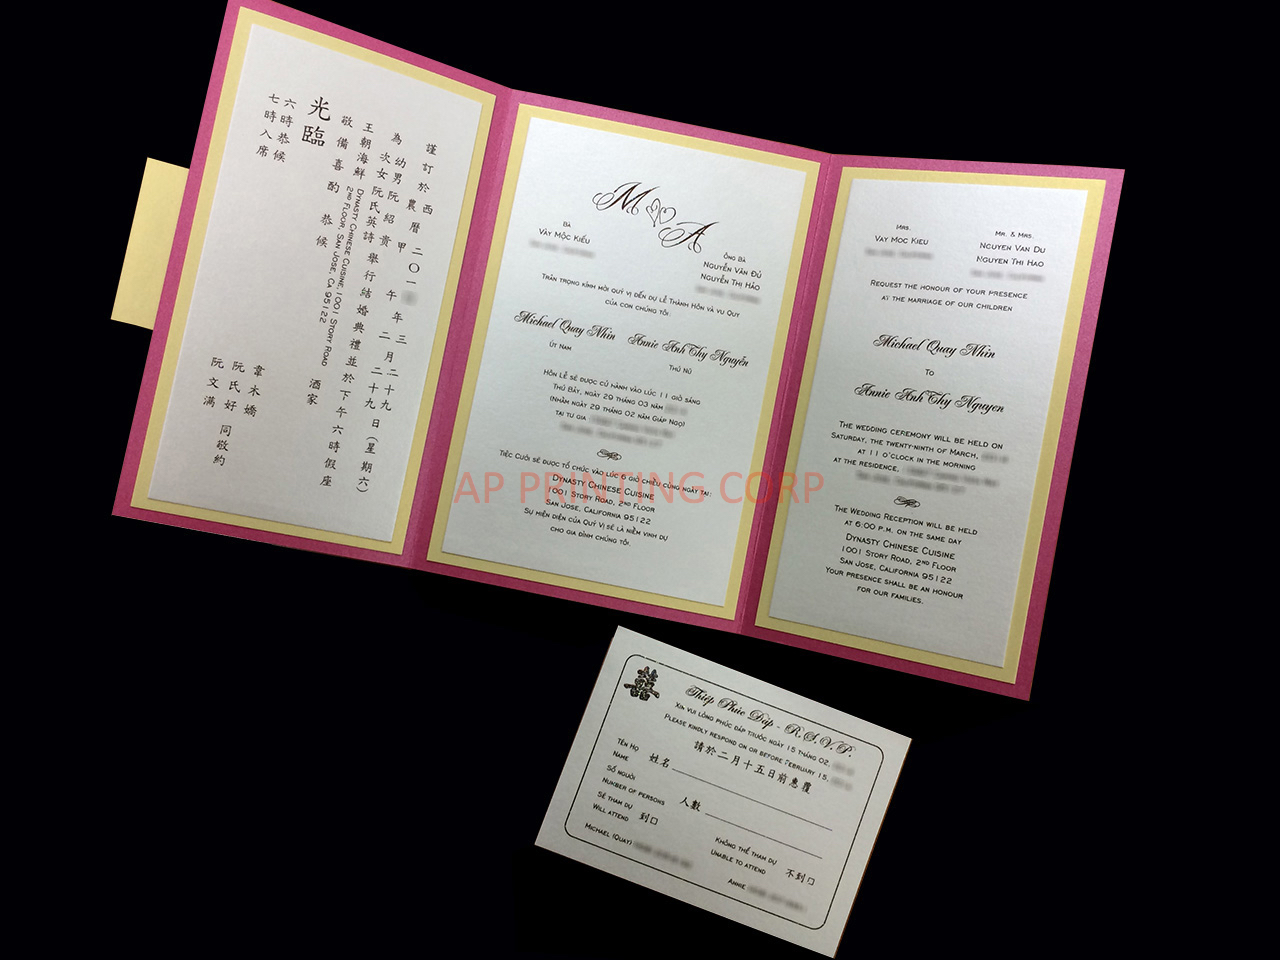 謹訂於西曆二〇一 年三月二十九日(星期六)
農甲午年二月二十九
為幼男阮紹贵
次女阮氏英詩舉行結婚典禮並於下午六時假座
王朝海鮮酒家
DYNASTY CHINESE CUISINE, 1001 STORY ROAD
2ND FLOOR, SAN JOSE, CA 95122
敬備喜酌 恭候
光臨
韋木嬌
阮氏好 同敬約
阮文滿
六時恭候
七時入席
M A
BÀ
VAY MỘC KIỀU
ÔNG BÀ
NGUYỄN VĂN ĐỦ
NGUYỄN THỊ HẢO
TRÂN TRỌNG KÍNH MỜI QUÝ VỊ ĐẾN DỰ LỄ THÀNH HÔN VÀ VU QUY
CỦA CON CHÚNG TÔI
Michael Quay Nhin
ÚT NAM
Annie Anh Thy Nguyễn
THỨ NỮ
HÔN LỄ SẼ ĐƯỢC CỬ HÀNH VÀO LÚC 11 GIỜ SÁNG
THỨ BẢY, NGÀY 29 THÁNG 03 NĂM
(NHẰM NGÀY 29 THÁNG 02 NĂM GIÁP NGỌ)
TẠI TƯ GIA
TIỆC CƯỚI SẼ ĐƯỢC TỔ CHỨC VÀO LÚC 6 GIỜ CHIỀU CÙNG NGÀY TẠI:
DYNASTY CHINESE CUISINE
1001 STORY ROAD, 2ND FLOOR
SAN JOSE, CALIFORNIA 95122
SỰ HIỆN DIỆN CỦA QUÝ VỊ SẼ LÀ NIỀM VINH DỰ
CHO GIA ĐÌNH CHÚNG TÔI
MRS.
VAY MOC KIEU
MR. & MRS.
NGUYEN VAN DU
NGUYEN THI HAO
REQUEST THE HONOUR OF YOUR PRESENCE
AT THE MARRIAGE OF OUR CHILDREN
Michael Quay Nhin
TO
Annie Anh Thy Nguyen
THE WEDDING CEREMONY WILL BE HELD ON
SATURDAY, THE TWENTY-NINTH OF MARCH,
AT 11 O'CLOCK IN THE MORNING
AT THE RESIDENCE,
THE WEDDING RECEPTION WILL BE HELD
AT 6:00 P.M. ON THE SAME DAY
DYNASTY CHINESE CUISINE
1001 STORY ROAD, 2ND FLOOR
SAN JOSE, CALIFORNIA 95122
YOUR PRESENCE SHALL BE AN HONOUR
FOR OUR FAMILIES.
AP PRINTING CORP
囍
Thiếp Phúc Đáp - R.S.V.P.
XIN VUI LÒNG PHÚC ĐÁP TRƯỚC NGÀY 15 THÁNG 02,
PLEASE KINDLY RESPOND ON OR BEFORE FEBRUARY 15,
請於二月十五日前惠覆
TÊN HỌ
NAME 姓名
SỐ NGƯỜI
NUNBER OF PERSONS 人數
SẼ THAM DỰ
WILL ATTEND 到
KHÔNG THỂ THAM DỰ
UNABLE TO ATTEND 不到
MICHAEL (QUAY)
ANNIE